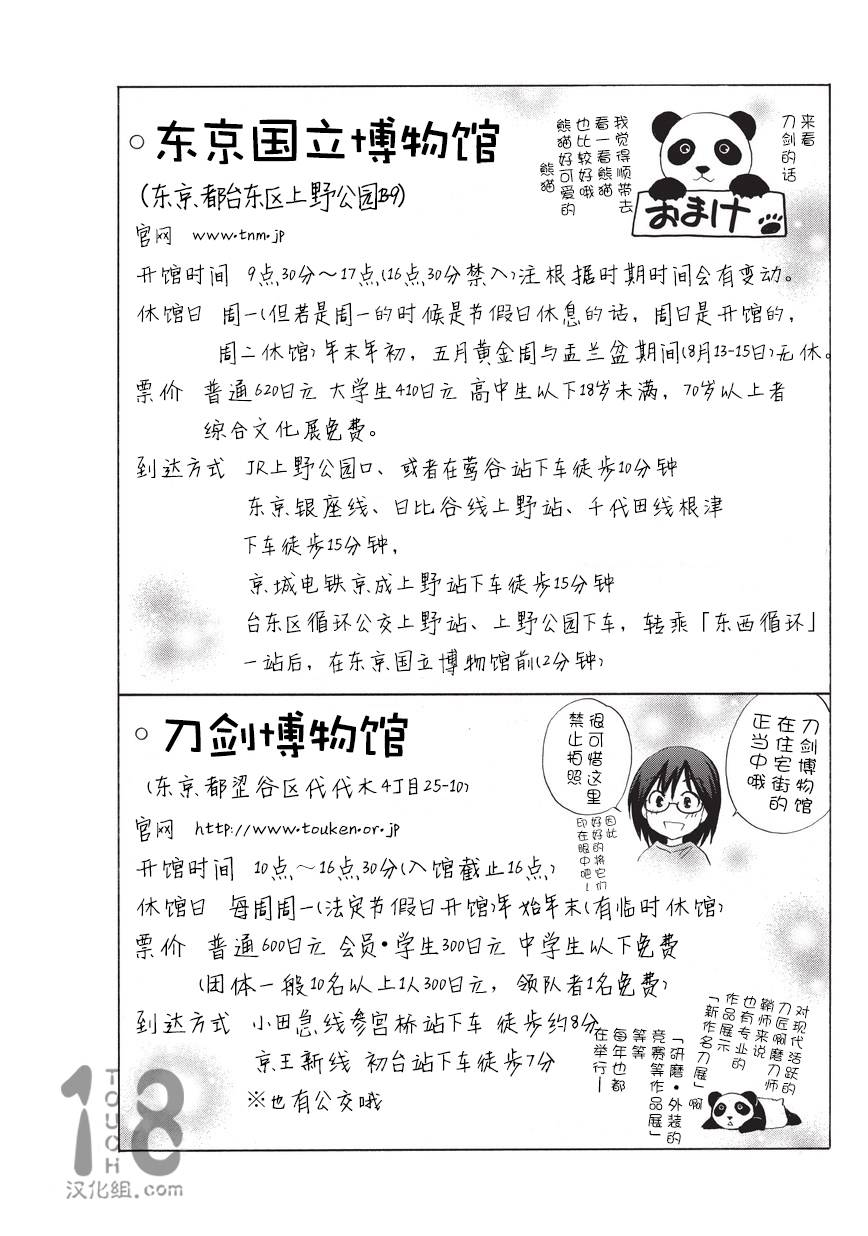 东京国立博物馆
(东京都台东区上野公园13-9)
官网 www.tnm.jp
开馆时间 9点30分～17点(16点30分禁入)注根据时期时间会有变动。
休馆日 周一(但若是周一的时候是节假日休息的话，周日是开馆的，
周二休馆)年末年初，五月黄金周与盂兰盆期间(8月13-15日)无休。
票价 普通620日元 大学生410日元 高中生以下18岁未满，70岁以上者
综合文化展免费。
到达方式 JR上野公园口、或者在莺谷站下车徒步10分钟
东京银座线、日比谷线上野站、千代田线根津
下车徒步15分钟，
京城电铁京成上野站下车徒步15分钟
台东区循环公交上野站、上野公园下车，转乘「东西循环」
一站后，在东京国立博物馆前(2分钟)
来看
刀剑的话
おまけ
我觉得顺带去
看一看熊猫
也比较好哦
熊猫好可爱的
熊猫
刀剑博物馆
(东京都涩谷区代代木4丁目25-10)
官网 http://www.touken.or.jp
开馆时间 10点～16点30分(入馆截止16点)
休馆日 每周周一(法定节假日开馆)年始年末(有临时休馆)
票价 普通600日元 会员·学生300日元 中学生以下免费
(团体一般10名以上1人300日元，领队者1名免费)
到达方式 小田急线参宫桥站下车 徒步约8分
京王新线 初台站下车徒步7分
※也有公交哦
刀剑博物馆
在住宅街的
正当中哦
很可惜这里
禁止拍照
因此
好好的将它们
印在眼中吧！
对现代活跃的
刀匠啊磨刀师
鞘师来说
也有专业的
作品展示
「新作名刀展」啊
「研磨·外装的
竞赛等作品展」
等等
每年也都
在举行—
TOUCH
18
汉化组.com